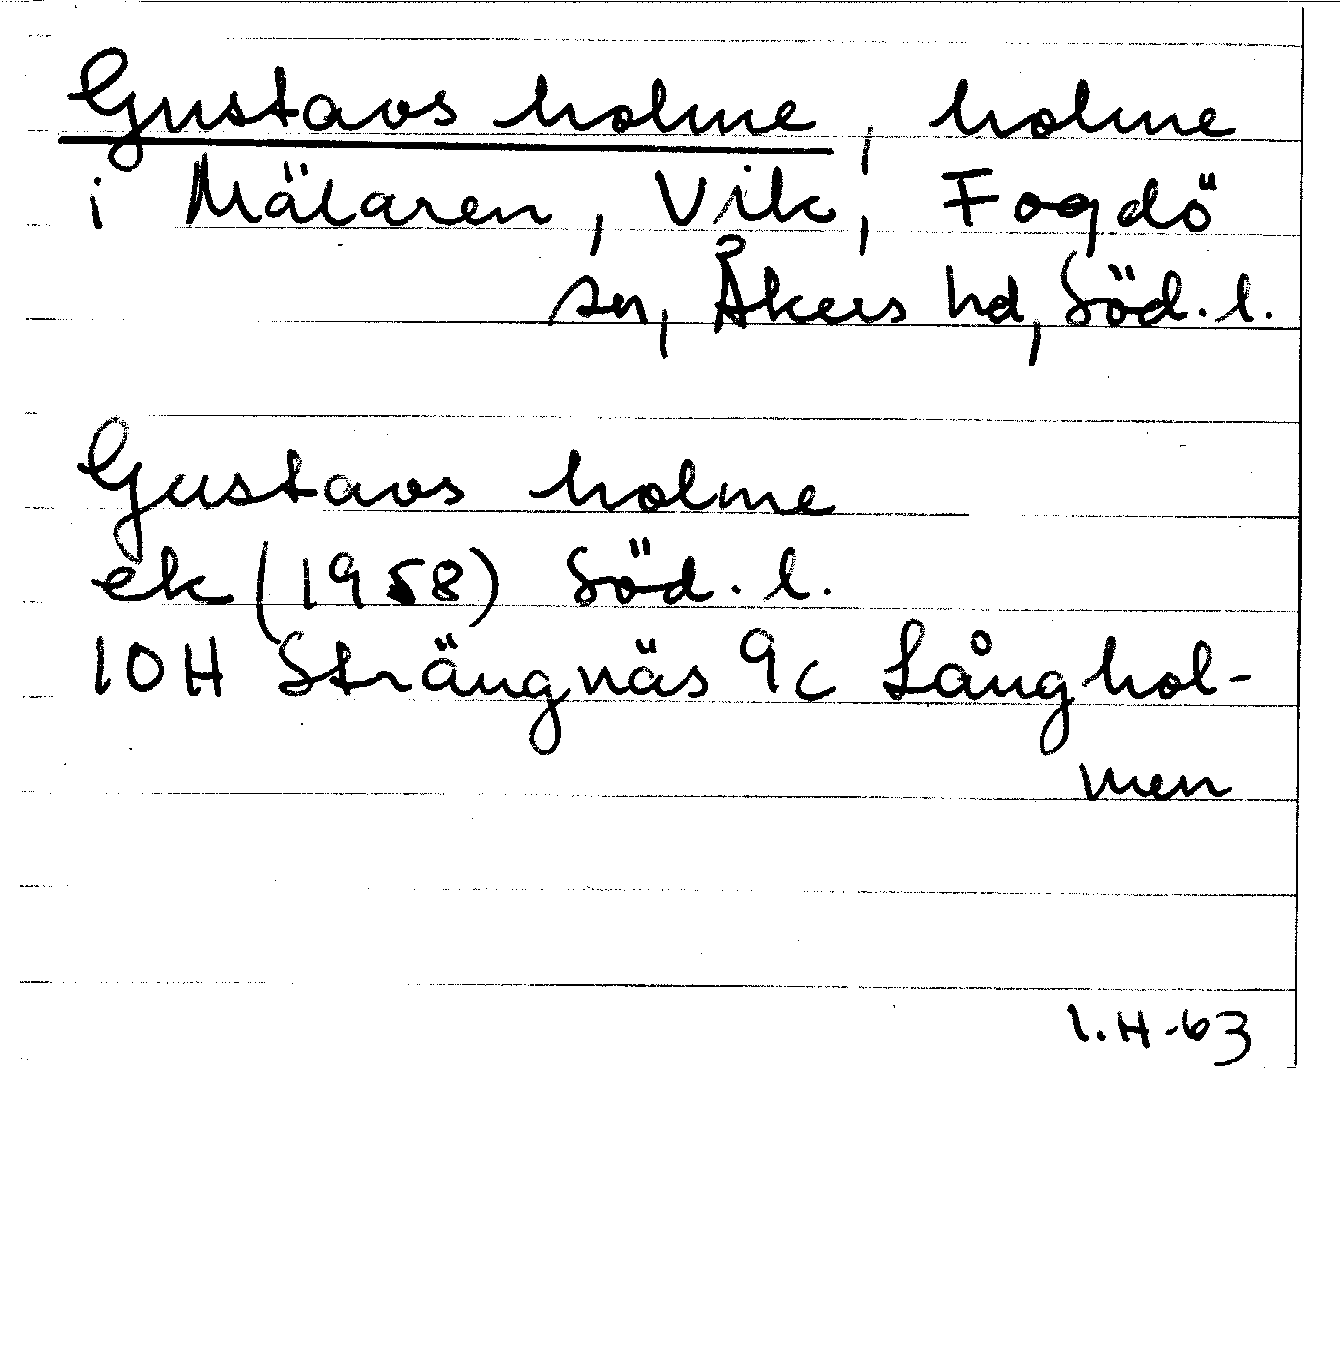 Gustavs holme, holme
i Mälaren, Vik, Fogdö
sn, Åkers hd, Söd. l.
Gustavs holme
ek (1958) Söd. l.
10H Strängnäs 9c Långhol-
men
I.H-63